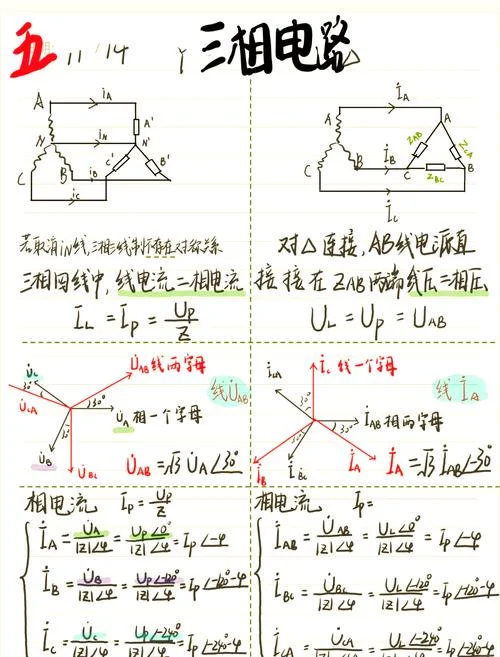 五 11/14 Y 三相电路 △
A i_A A'
N i_N N'
C B i_B C' B'
i_C
İ_A
A A
Z_AB Z_CA
N İ_B
C B C Z_BC B
İ_C
若取消iN线,三相线制所存在对称关系
三相四线中,线电流=相电流
İ_L = İ_P = U_P/Z
对△连接,AB线电源直
接接在ZAB两端线压=相压
U_L = U_P = U_AB
U̇_C U̇_AB 线两字母 线U̇_AB
30° 30°
U̇_CA U̇_A 相一个字母
30°
U̇_B
U̇_BC U̇_AB=√3 U̇_A∠30°
İ_CA İ_C 线一个字母 线 İ_A
30°
İ_AB 相两字母
30° 30°
İ_B İ_BC İ_A İ_A=√3 İ_AB∠-30°
相电流 İ_P=U_P/Z
İ_A = U̇_A/|Z|∠φ = U_P∠0°/|Z|∠φ = I_P∠-φ
İ_B = U̇_B/|Z|∠φ = U_P∠-120°/|Z|∠φ = I_P∠-120°-φ
İ_C = U̇_C/|Z|∠φ = U_P∠-240°/|Z|∠φ = I_P∠-240°-φ
相电流 I_P=
İ_AB = U̇_AB/|Z|∠φ = U_L∠0°/|Z|∠φ = I_P∠-φ
İ_BC = U̇_BC/|Z|∠φ = U_L∠-120°/|Z|∠φ = I_P∠-120°-φ
İ_CA = U̇_CA/|Z|∠φ = U_L∠-240°/|Z|∠φ = I_P∠-240°-φ